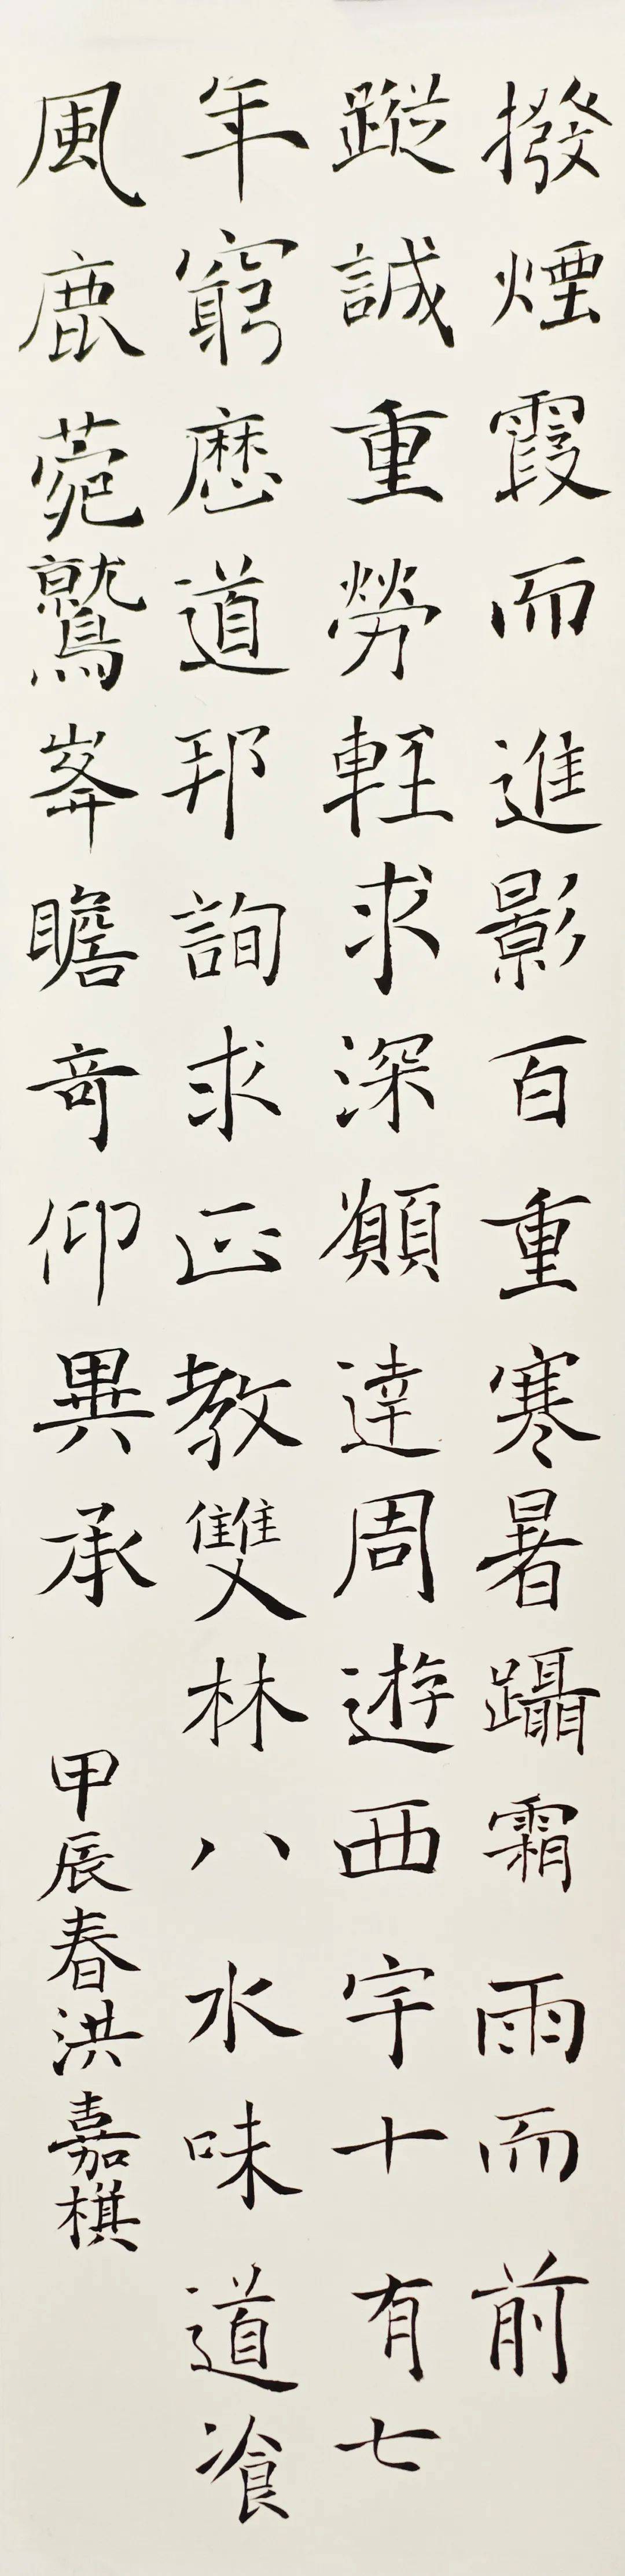 撥煙霞而進影百重寒暑躡霜雨而前
蹤誠重勞輕求深願達周遊西宇十有七
年窮歷道邦詢求正教雙林八水味道飡
風鹿菀鷲峯瞻奇仰異承
甲辰春洪嘉棋